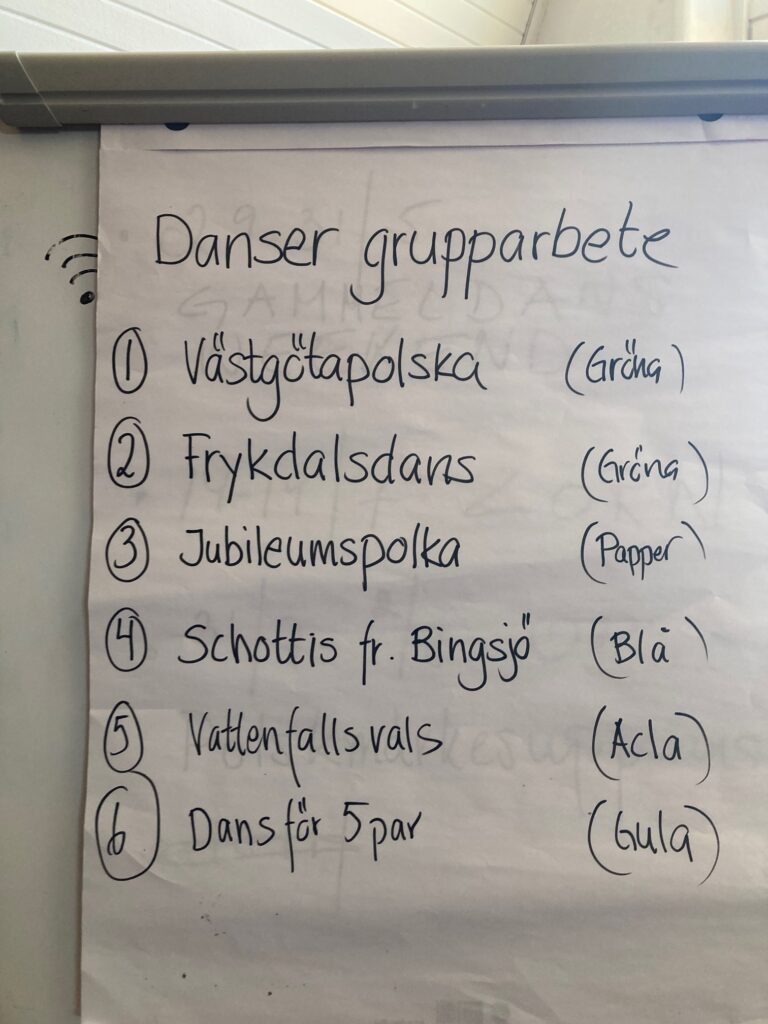 Danser grupparbete
1 Västgötapolska (Gröna)
2 Frykdalsdans (Gröna)
3 Jubileumspolka (Papper)
4 Schottis fr. Bingsjö (Blå)
5 Vattenfallsvals (Acla)
6 Dans för 5 par (Gula)